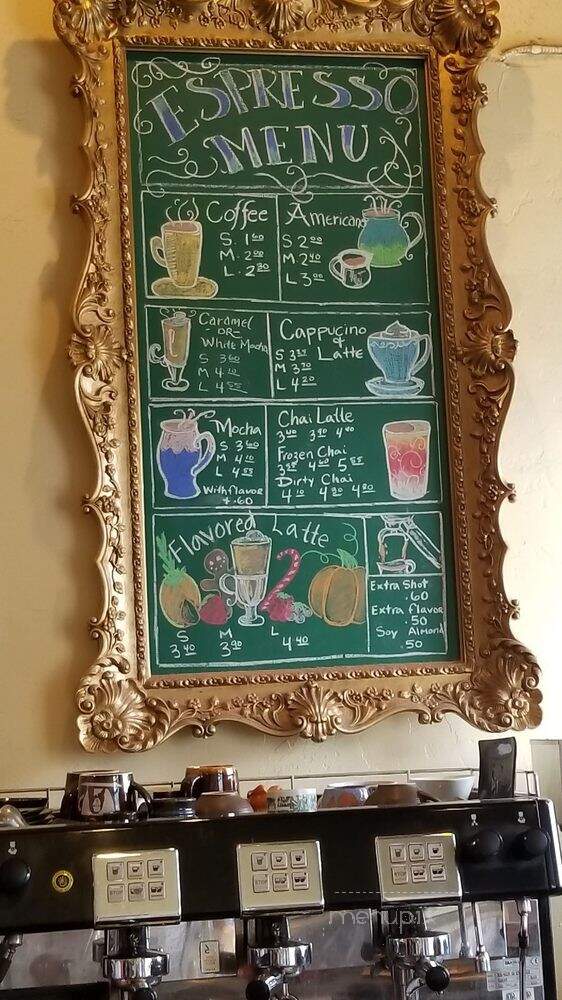 ESPRESSO
MENU
Coffee
S. 1 60
M. 2 00
L. 2 30
Americano
S 2 00
M. 2 40
L 3 00
Caramel
-OR-
White Mocha
S 3 60
M 4 10
L 4 55
Cappucino
&
Latte
S 3 25
M 3 70
L 4 20
Mocha
S 3 60
M 4 10
L 4 55
With flavor
+ .60
Chai Latte
3 40 3 90 4 40
Frozen Chai
4 60 5 55
Dirty Chai
4 10 4 80
Flavored Latte
S M L
3 40 3 90 4 40
Extra Shot
.60
Extra flavor
.50
Soy Almond
.50
STOP STOP STOP
menupix